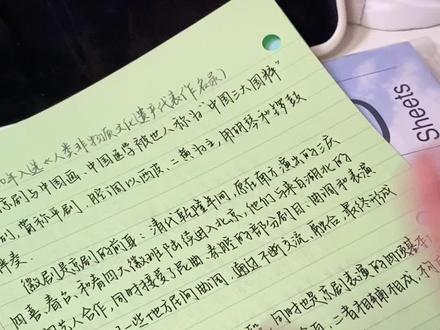 年入选世人类非物质文化遗产代表作名录)
京剧与中国画、中国医学被世人称为"中国三大国粹"
剧,曾称平剧,腔调以西皮、二黄为主,用胡琴和锣鼓
伴奏。
徽剧是京剧的前身:清代乾隆年间,原在南方演出的三庆
四喜、春台、和春四大徽班陆续进入北京,他们与来自湖北的
艺人合作,同时接受了昆曲、秦腔的部分剧目、曲调和表演
一些地方民间曲调,通过不断交流、融合,最终形成
同时也是京剧表演的四
二者相辅相成,不可
Sheets